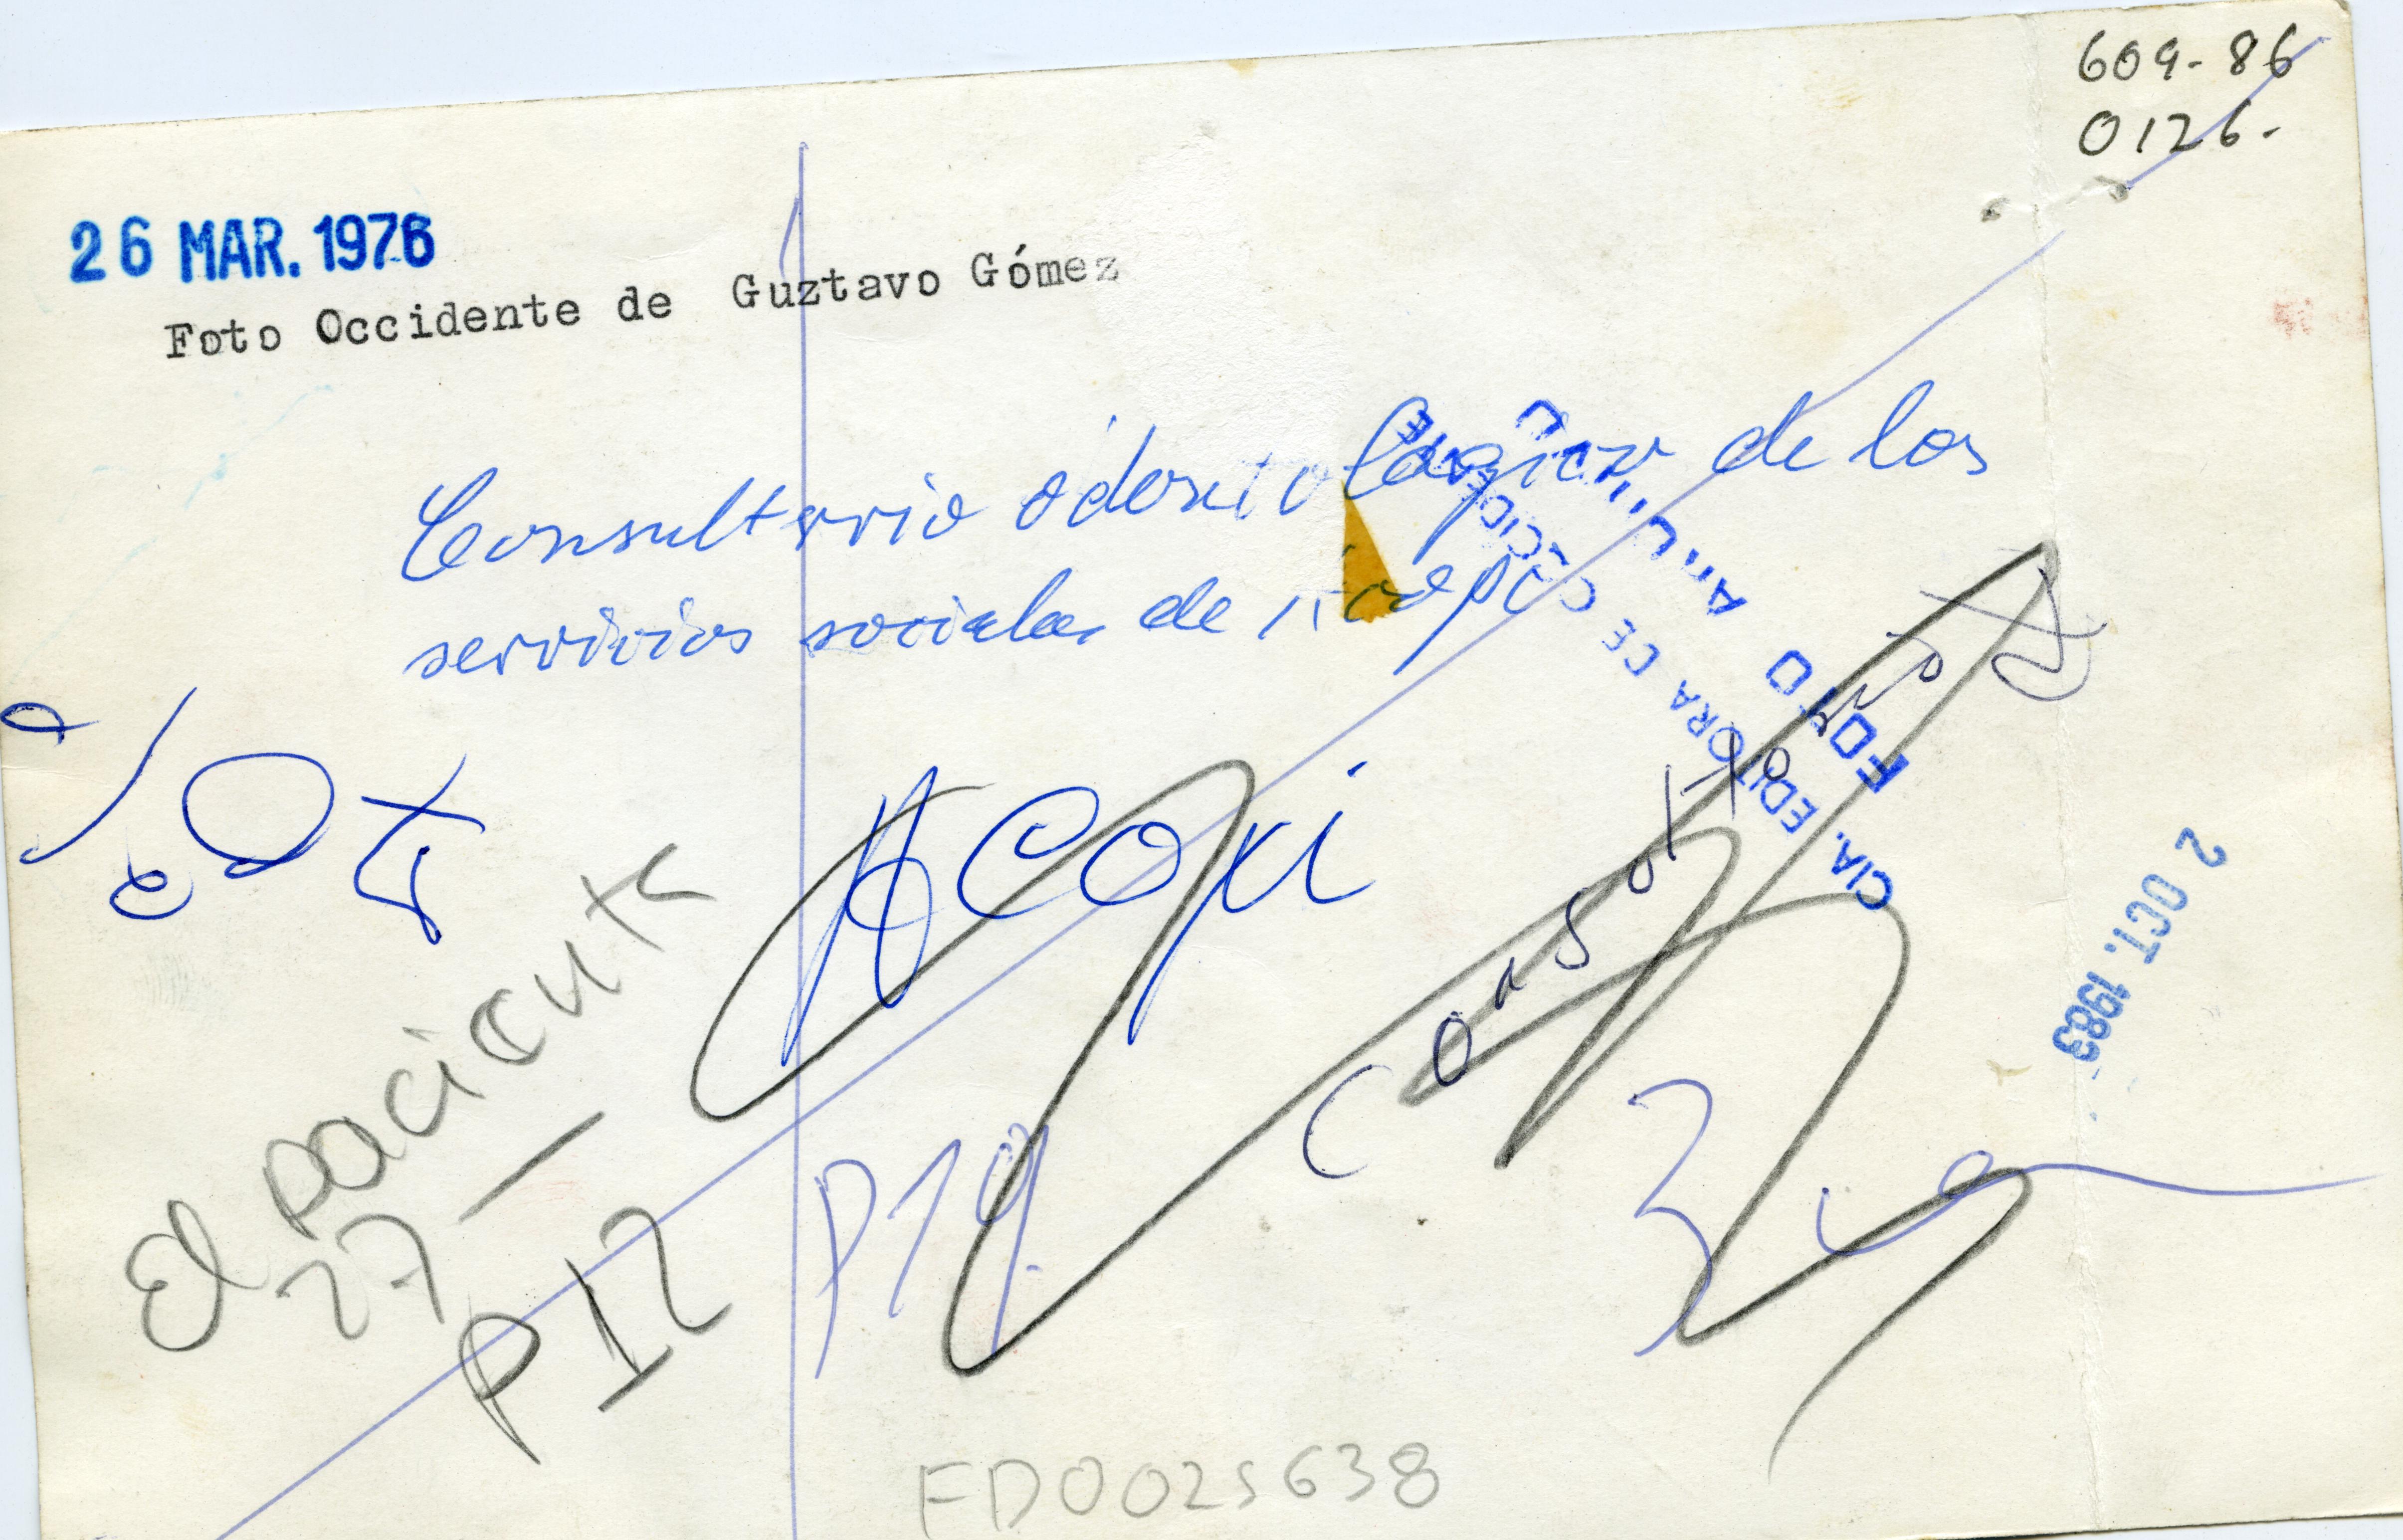 609-86
0126-
26 MAR. 1976
Foto Occidente de Guztavo Gómez
Consultorio odontologico de los
servicios sociales de Acopi
FOTO ARCHIVO
CIA. EDITORA DE OCCIDENTE
Acopi
2 OCT. 1983
El paciente
27 -
P12
P19
FD0025638